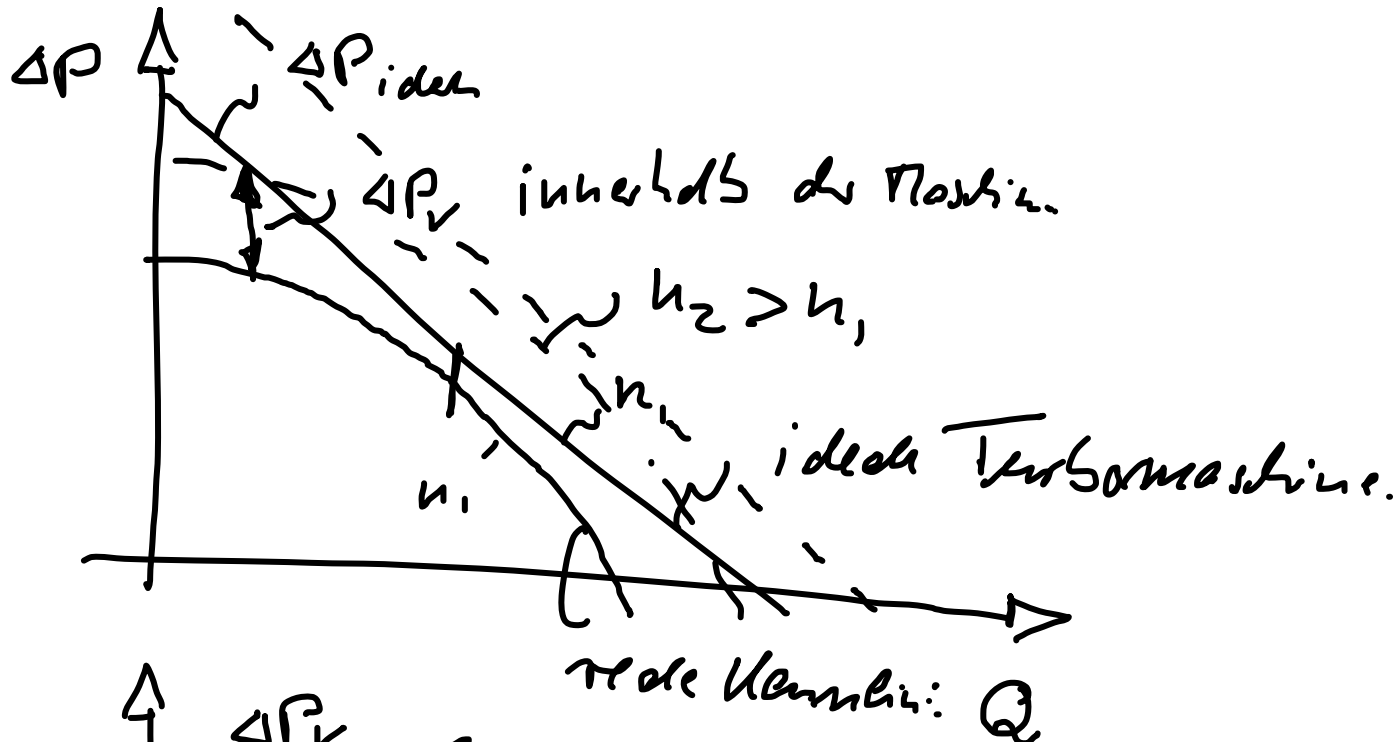 ΔP
ΔP ideal
ΔPv innerhalb der Maschine
n2 > n1
n1
ideale Turbomaschine.
n1
reale Kennlinie
Q
ΔPv